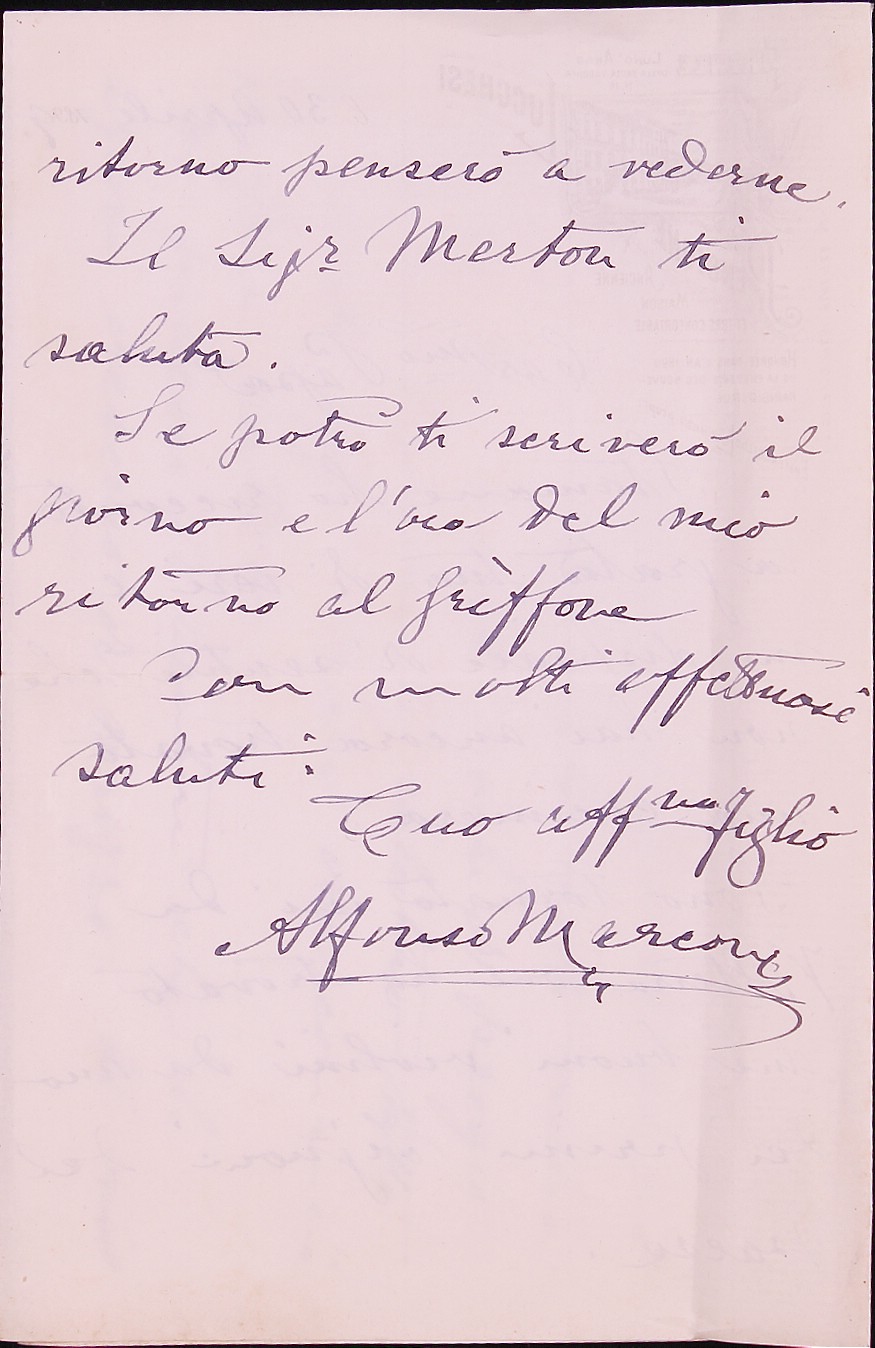 ritorno penserò a vederne.
Il Sigr Merton ti
saluta.
Se potrò ti scriverò il
giorno e l'ora del mio
ritorno al Griffone
Con molti affettuosi
saluti:
Tuo affmo figlio
Alfonso Marconi